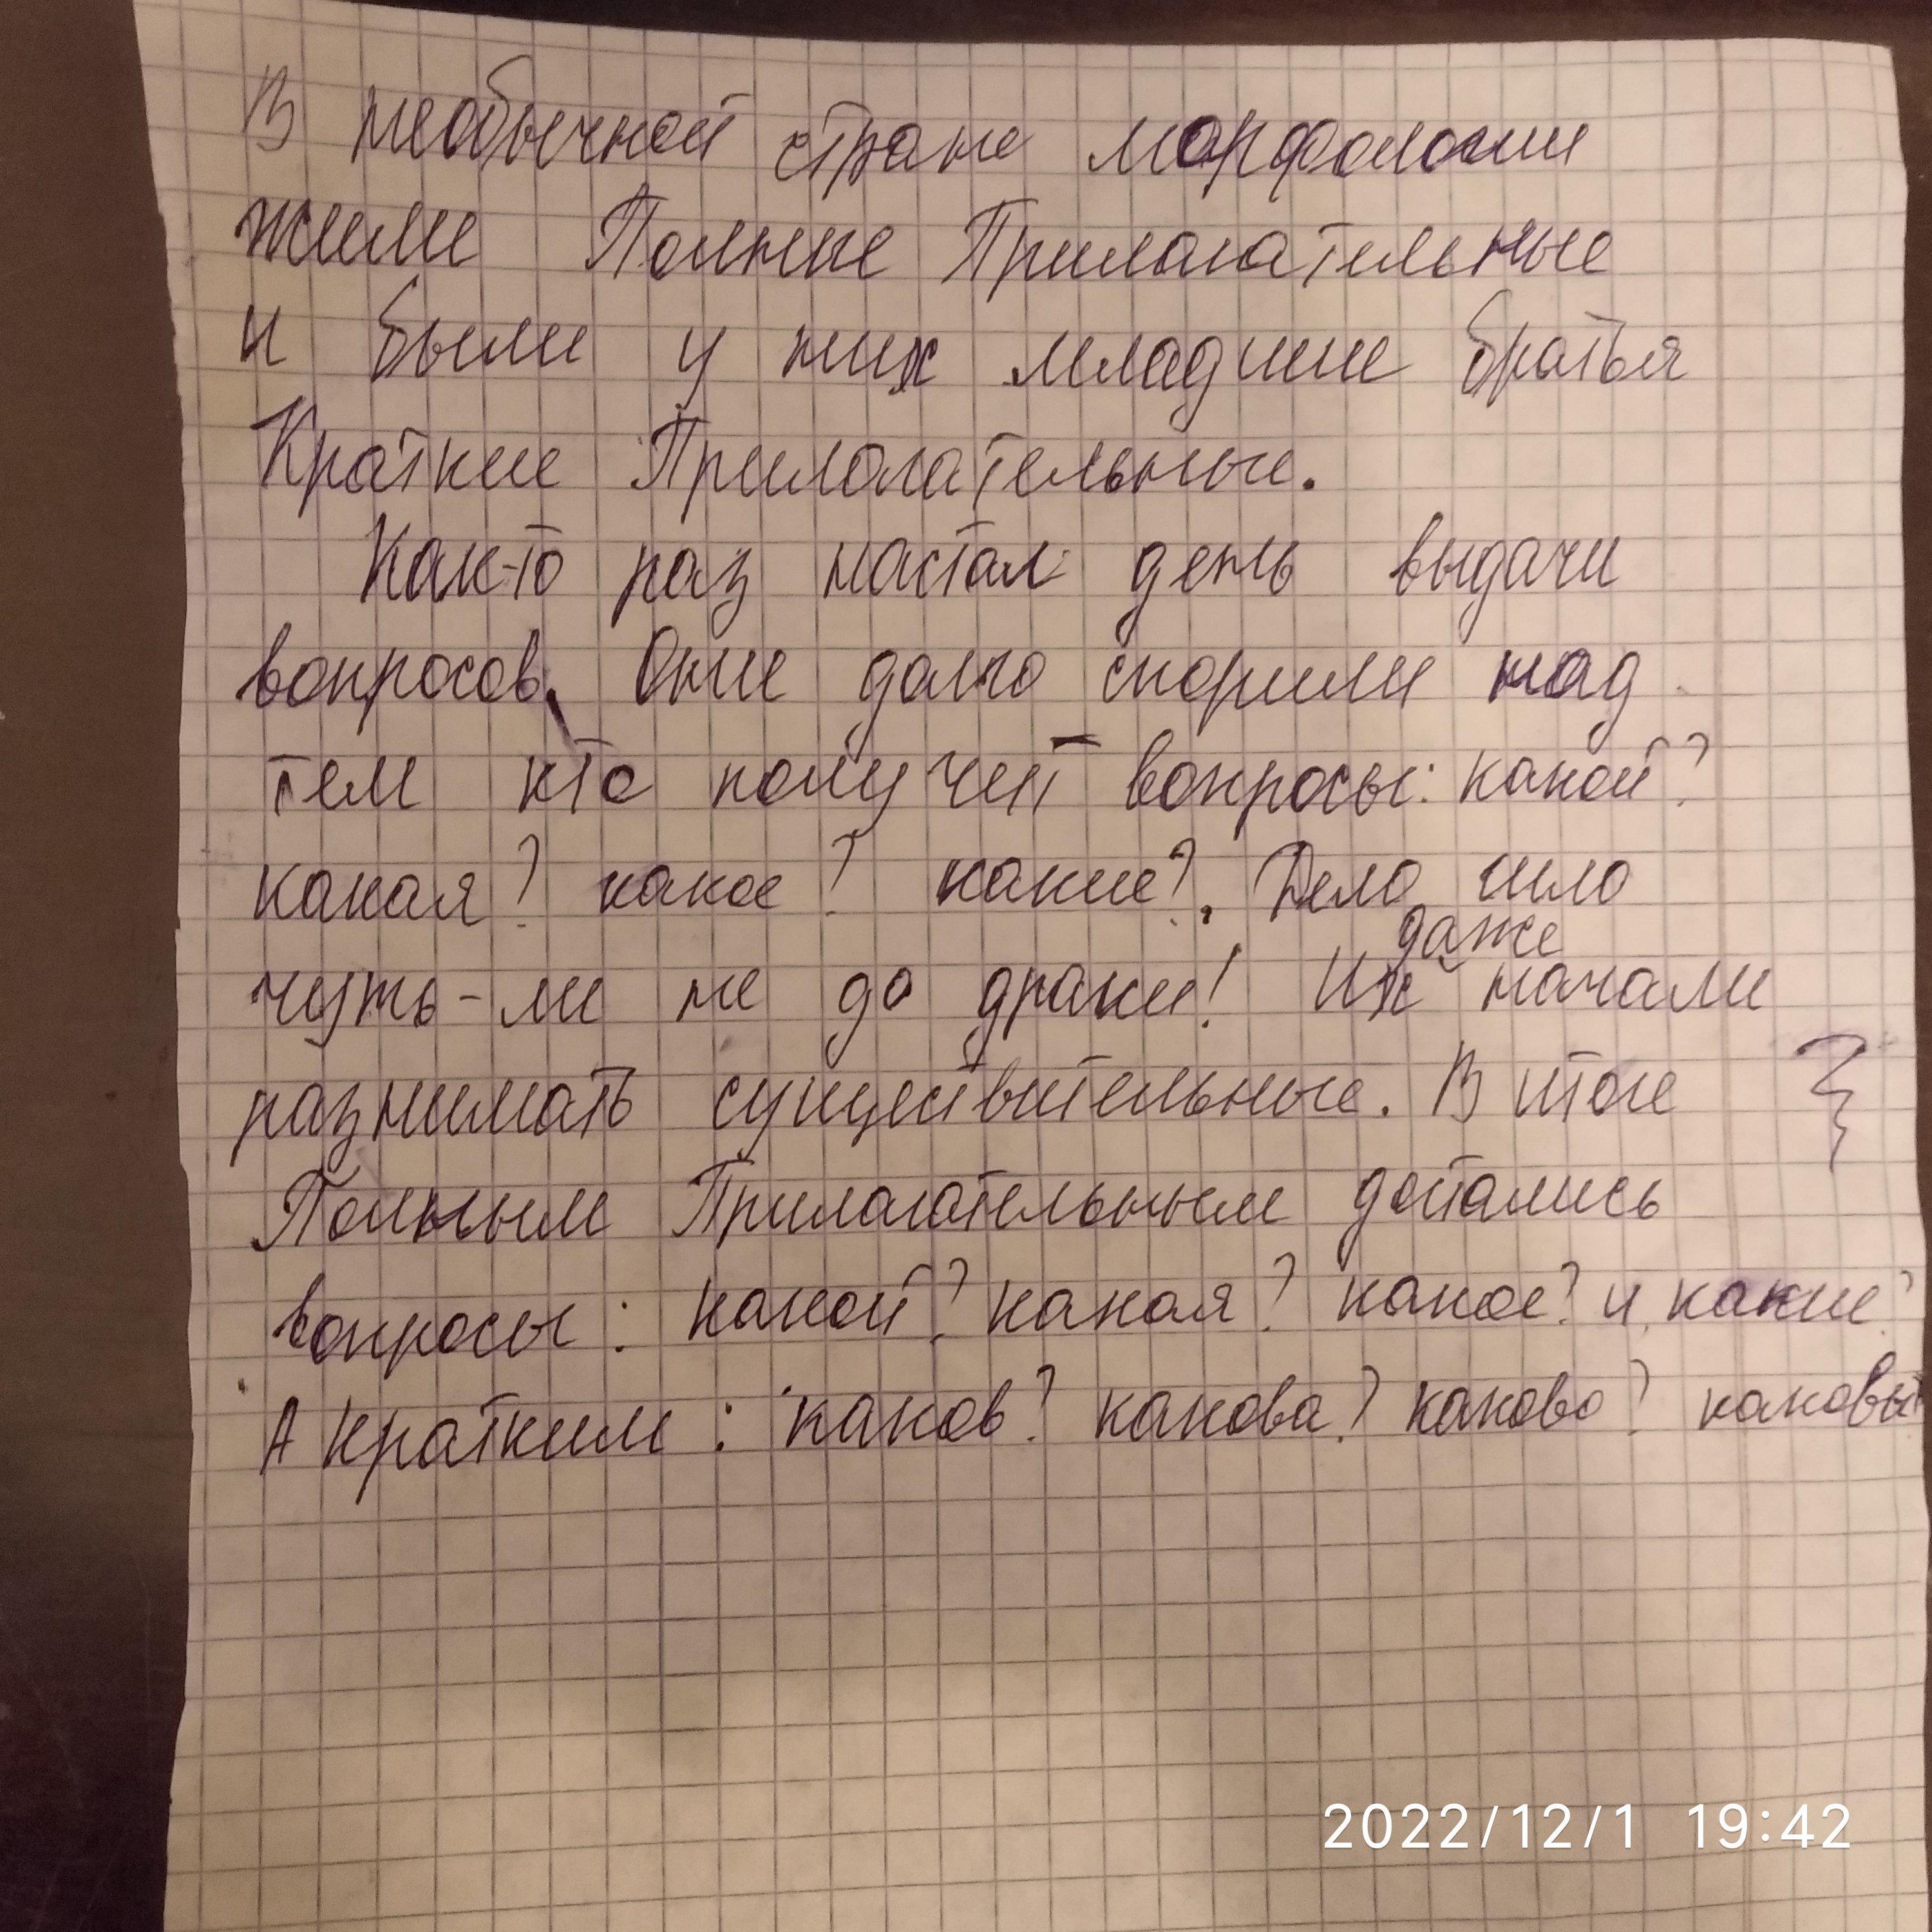 В необычной стране морфологии
жили Полные Прилагательные
и были у них младшие братья
Краткие Прилагательные.
Как-то раз настал день выдачи
вопросов. Они долго спорили над
тем кто получит вопросы: какой?
какая? какое? какие?. Дело шло
даже
чуть-ли не до драки! Их начали
разнимать существительные. В итоге
Полным Прилагательным достались
вопросы: какой? какая? какое? и какие?
А кратким: каков? какова? каково? каковы?
2022/12/1 19:42